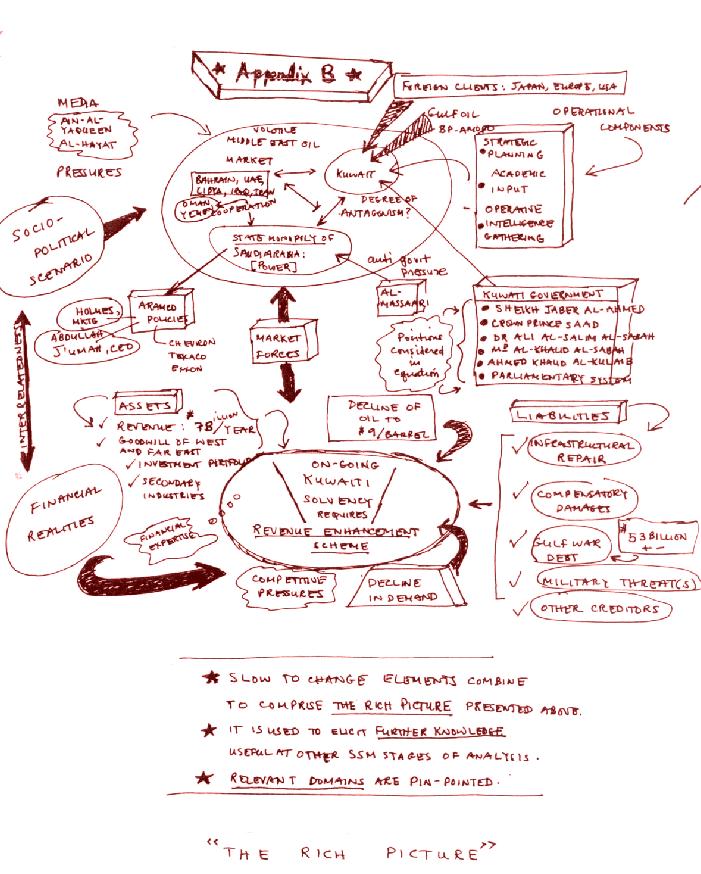 ★ Appendix B ★
FOREIGN CLIENTS: JAPAN, EUROPE, USA
MEDIA
AIN-AL-
YAQUEEN
AL-HAYAT
PRESSURES
GULF OIL
BP-AMOCO
OPERATIONAL
COMPONENTS
STRATEGIC
PLANNING
ACADEMIC
INPUT
OPERATIVE
INTELLIGENCE
GATHERING
VOLATILE
MIDDLE EAST OIL
MARKET
KUWAIT
BAHRAIN, UAE,
LIBYA, IRAQ, IRAN
OMAN
YEMEN
COOPERATION
DEGREE OF
ANTAGONISM?
STATE MONOPOLY OF
SAUDI ARABIA:
[POWER]
SOCIO-
POLITICAL
SCENARIO
anti govt
pressure
AL-
MASSAARI
HOLMES,
MKTG
ABDULLAH
JIUMAH, CEO
ARAMCO
POLICIES
CHEVRON
TEXACO
EXXON
MARKET
FORCES
Positions
considered
in
equation
KUWAITI GOVERNMENT
SHEIKH JABER AL-AHMED
CROWN PRINCE SAAD
DR ALI AL-SALIM AL-SABAH
MR AL-KHALID AL-SABAH
AHMED KHALID AL-KULAIB
PARLIAMENTARY SYSTEM
INTERRELATEDNESS
ASSETS
REVENUE: $78 BILLION/YEAR
GOODWILL OF WEST
AND FAR EAST
INVESTMENT PORTFOLIO
SECONDARY
INDUSTRIES
DECLINE OF
OIL TO
$9/BARREL
LIABILITIES
INFRASTRUCTURAL
REPAIR
COMPENSATORY
DAMAGES
GULF WAR
DEBT
$53 BILLION
+ -
MILITARY THREAT(S)
OTHER CREDITORS
ON-GOING
KUWAITI
SOLVENCY
REQUIRES
REVENUE ENHANCEMENT
SCHEME
FINANCIAL
REALITIES
FINANCIAL
EXPERTISE
COMPETITIVE
PRESSURES
DECLINE
IN DEMAND
★ SLOW TO CHANGE ELEMENTS COMBINE
TO COMPRISE THE RICH PICTURE PRESENTED ABOVE.
★ IT IS USED TO ELICIT FURTHER KNOWLEDGE
USEFUL AT OTHER SSM STAGES OF ANALYSIS.
★ RELEVANT DOMAINS ARE PIN-POINTED.
"THE RICH PICTURE"